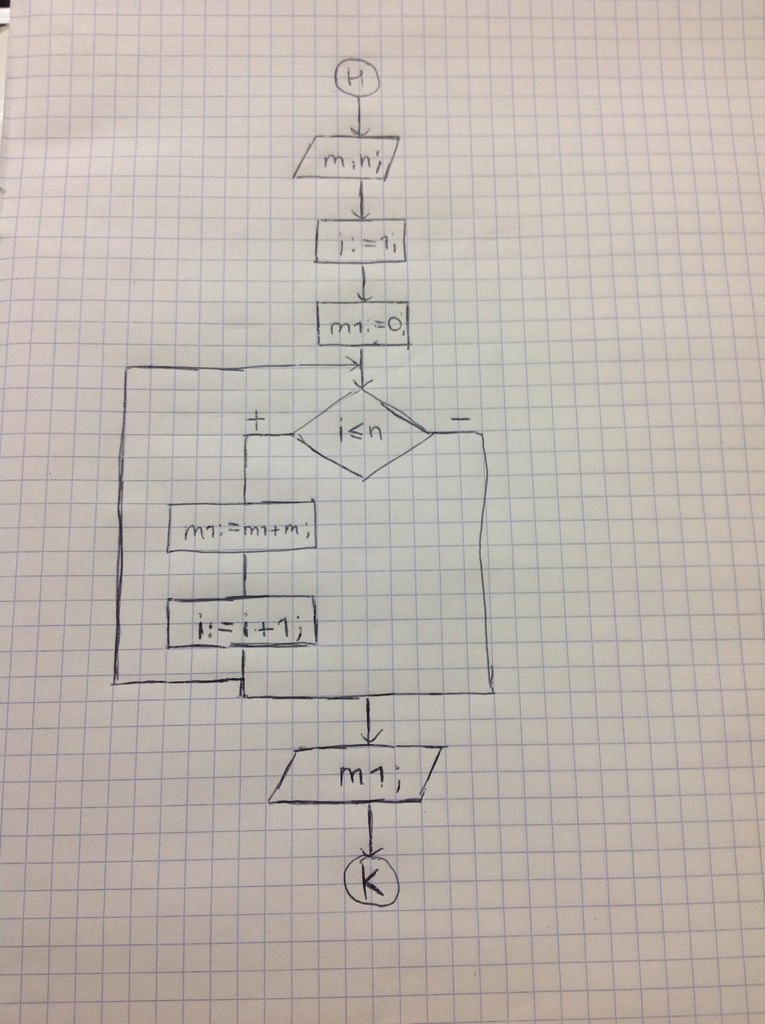 Н
m,n;
i:=1;
m1:=0;
i≤n
+
-
m1:=m1+m;
i:=i+1;
m1;
К